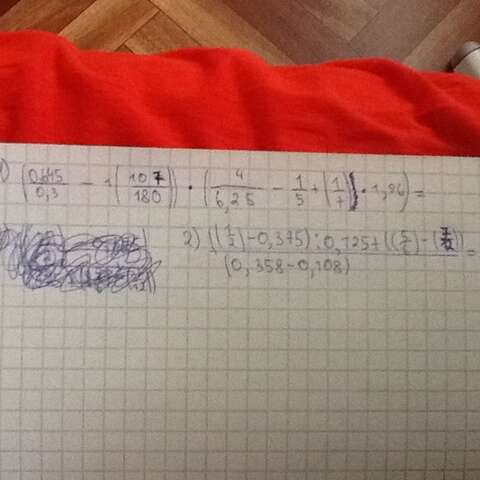 1) (0,645/0,3 − 1(107/180)) · (4/6,25 − 1/5 + (1/7) · 1,96) =
2) ((1/2) − 0,375) : 0,125 + ((5/6) − (7/12)) / (0,358 − 0,108) =